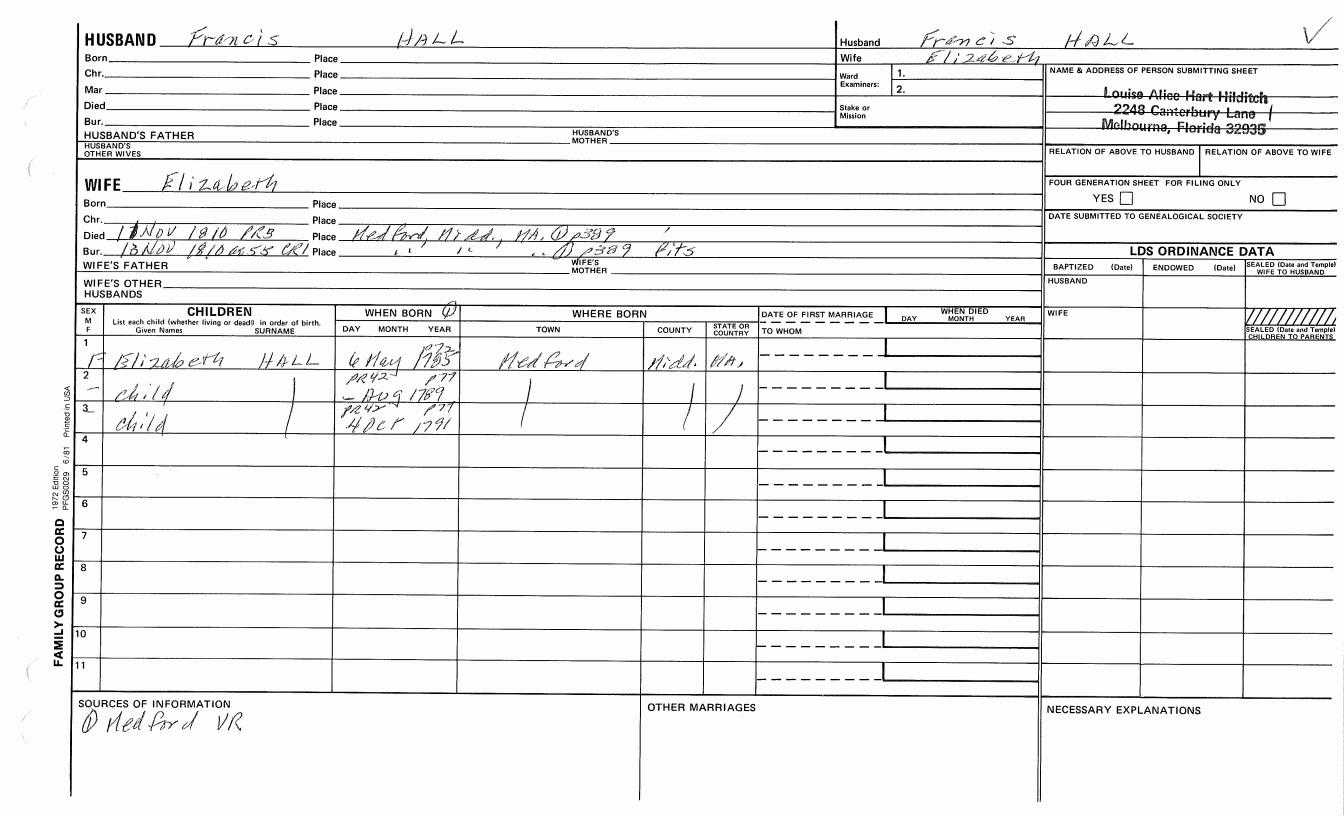 HUSBAND Francis HALL
Born Place
Chr. Place
Mar Place
Died Place
Bur. Place
HUSBAND'S FATHER HUSBAND'S MOTHER
HUSBAND'S OTHER WIVES
Husband Francis HALL ✓
Wife Elizabeth
Ward Examiners: 1.
2.
Stake or Mission
NAME & ADDRESS OF PERSON SUBMITTING SHEET
Louise Alice Hart Hilditch
2248 Canterbury Lane
Melbourne, Florida 32935
RELATION OF ABOVE TO HUSBAND RELATION OF ABOVE TO WIFE
FOUR GENERATION SHEET FOR FILING ONLY
YES NO
DATE SUBMITTED TO GENEALOGICAL SOCIETY
WIFE Elizabeth
Born Place
Chr. Place
Died 11 Nov 1810 PR3 Place Medford, Midd., MA. ① p389
Bur. 13 Nov 1810 ae 55 CR1 Place " " " ① p389 Fits
WIFE'S FATHER WIFE'S MOTHER
WIFE'S OTHER HUSBANDS
LDS ORDINANCE DATA
BAPTIZED (Date) ENDOWED (Date) SEALED (Date and Temple) WIFE TO HUSBAND
HUSBAND
WIFE
SEALED (Date and Temple) CHILDREN TO PARENTS
SEX M F
CHILDREN
List each child (whether living or dead) in order of birth.
Given Names SURNAME
WHEN BORN ①
DAY MONTH YEAR
WHERE BORN
TOWN COUNTY STATE OR COUNTRY
DATE OF FIRST MARRIAGE
TO WHOM
WHEN DIED
DAY MONTH YEAR
1 p72
F Elizabeth HALL 6 May 1785 Medford Midd. MA.
2 PR42 p77
- child - Aug 1789
3 PR42 p77
child 4 Oct 1791
4
5
6
7
8
9
10
11
SOURCES OF INFORMATION
① Medford VR
OTHER MARRIAGES
NECESSARY EXPLANATIONS
FAMILY GROUP RECORD
1972 Edition
PFGS0029 6/81 Printed in USA